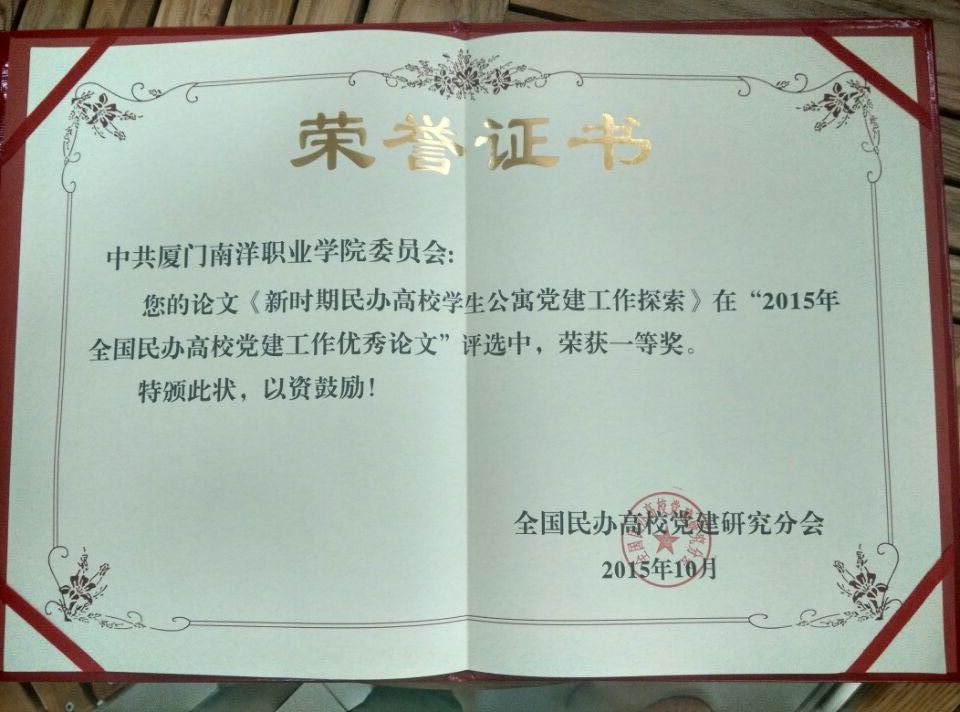 荣誉证书
中共厦门南洋职业学院委员会:
您的论文《新时期民办高校学生公寓党建工作探索》在“2015年
全国民办高校党建工作优秀论文”评选中，荣获一等奖。
特颁此状，以资鼓励!
全国民办高校党建研究分会
2015年10月